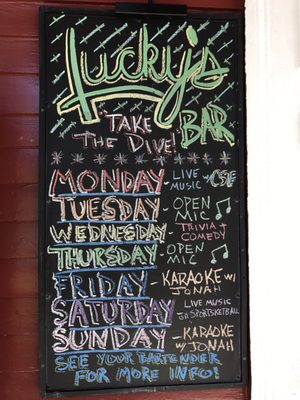 Lucky's
BAR
"TAKE
THE DIVE!"
MONDAY - LIVE MUSIC
TUESDAY - OPEN MIC
WEDNESDAY - TRIVIA + COMEDY
THURSDAY - OPEN MIC
FRIDAY - KARAOKE w/ JONAH
SATURDAY LIVE MUSIC SPORTSKETBALL
SUNDAY - KARAOKE w/ JONAH
SEE YOUR BARTENDER
FOR MORE INFO!